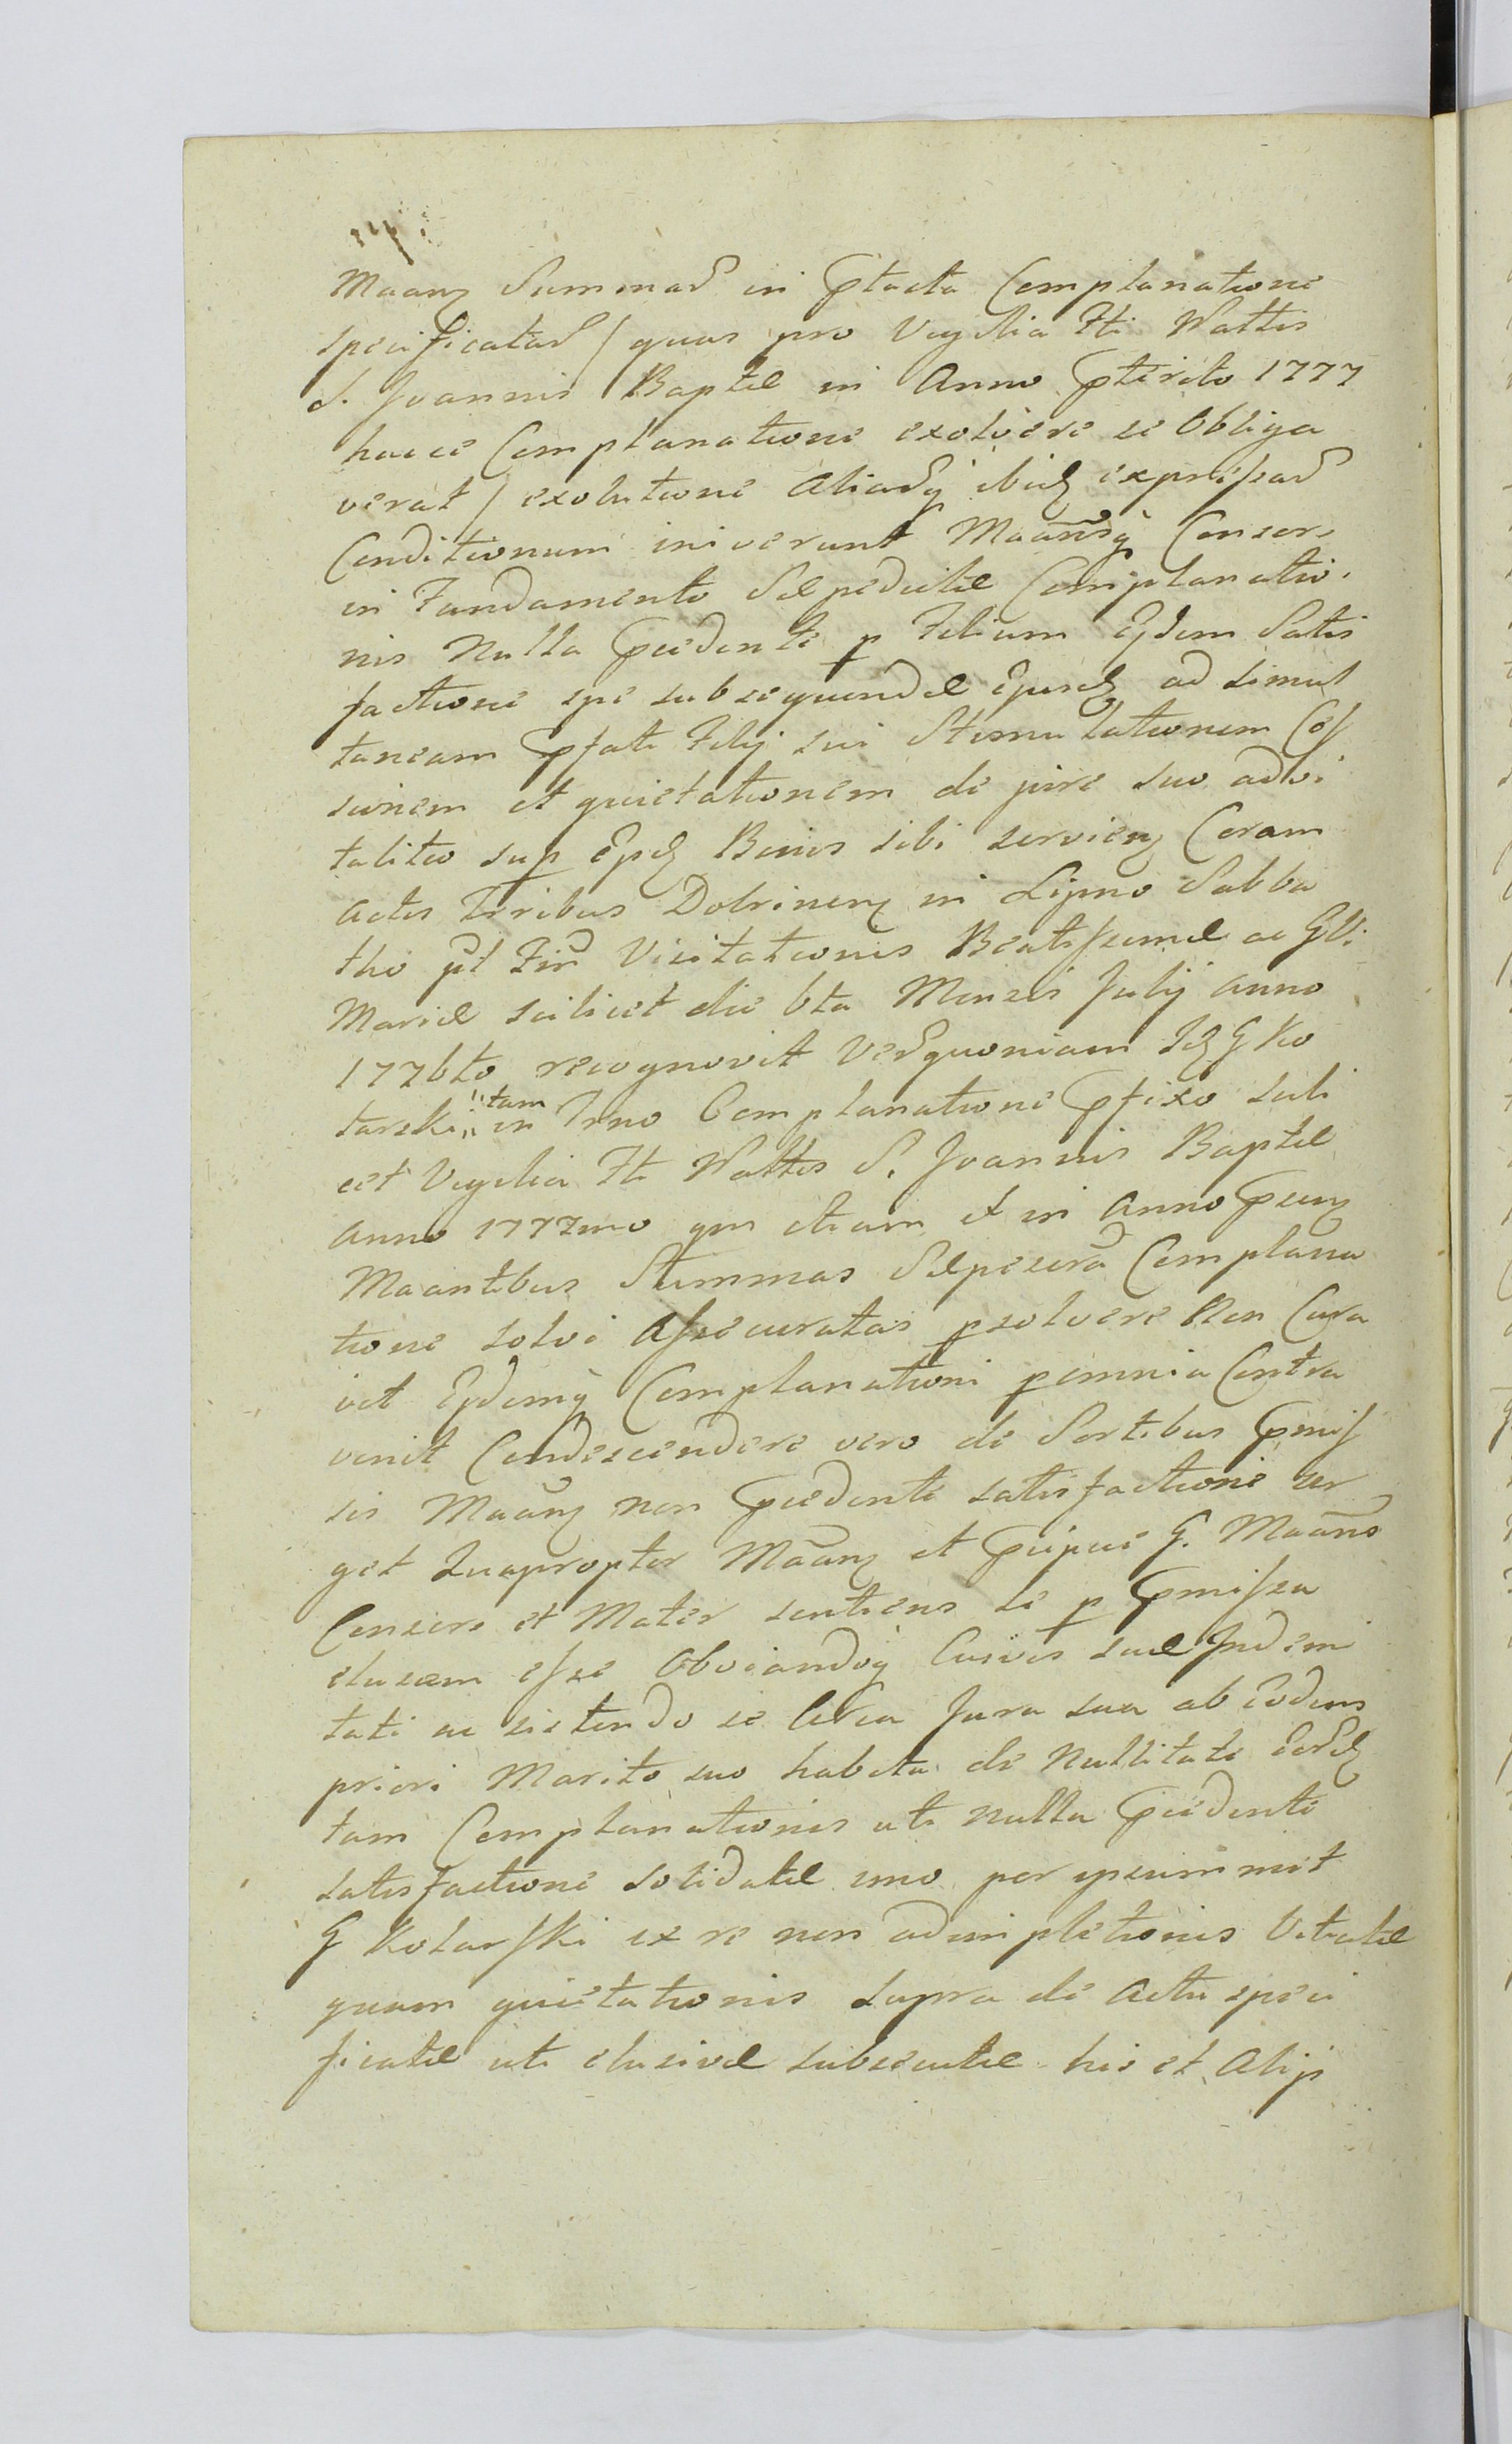 Maanq Summar in Ptacta Complanatione
specificatar / quas pro Vigilia Fti Nattis
S. Joannis Baptæ in Anno Pterito 1777
hacce Complanatione exolvere se Obliga
verat / exolutione aliarq ibidq expressar
Conditionum iniverunt Maansq Consors
in Fundamento Sæpedictæ Complanatio.
nis Nulla Pcedente p Filium Ejdem Satis
factione spe subsequendæ Ejusdq ad simul
taneam Pfati Filij sui Stimulationem Ces
sionem et quietationem de jure suo advi
talitio sup Epdq Bonis sibi servienq Coram
actis Trribus Dobrinenq in Lipno Sabba
tho pt Fm Visitationis Beatissimæ ac GV.
Mariæ scilicet die 6ta Mensis Julij anno
1776to recognovit Verquoniam Idq G Ko
tarski tam in Trno Complanatione Pfixo scili
cet Vigilia Fti Nattis S. Joannis Baptæ
anno 1777mo qm etiam et in anno Psenq
Maantibus Summas Sæpesera Complana
tione solvi assecuratas psolvere Non Cura
vit Ejdemq Complanationi pomnia Contra
venit Condescendere vero de Sortibus Pmis
sis Maanq non Pcedente satisfactione ur
get Quapropter Maanq et Pcipue G. Maans
Consors et Mater sentiens se p Pmissa
elusam esse Obviandoq Cuivis suæ Indem
tati ac sistendo se Circa Jura sua ab Eodem
priori Marito suo habita de Nullitate Eordq
tam Complanationis uti nulla Pcedente
satisfactione solidatæ imo per ipsummet
G Kotarski ex re non adimpletionis Vitiatæ
quam quietationis supra de Actu speci
ficatæ uti elusivæ subsecutæ his et Alijs